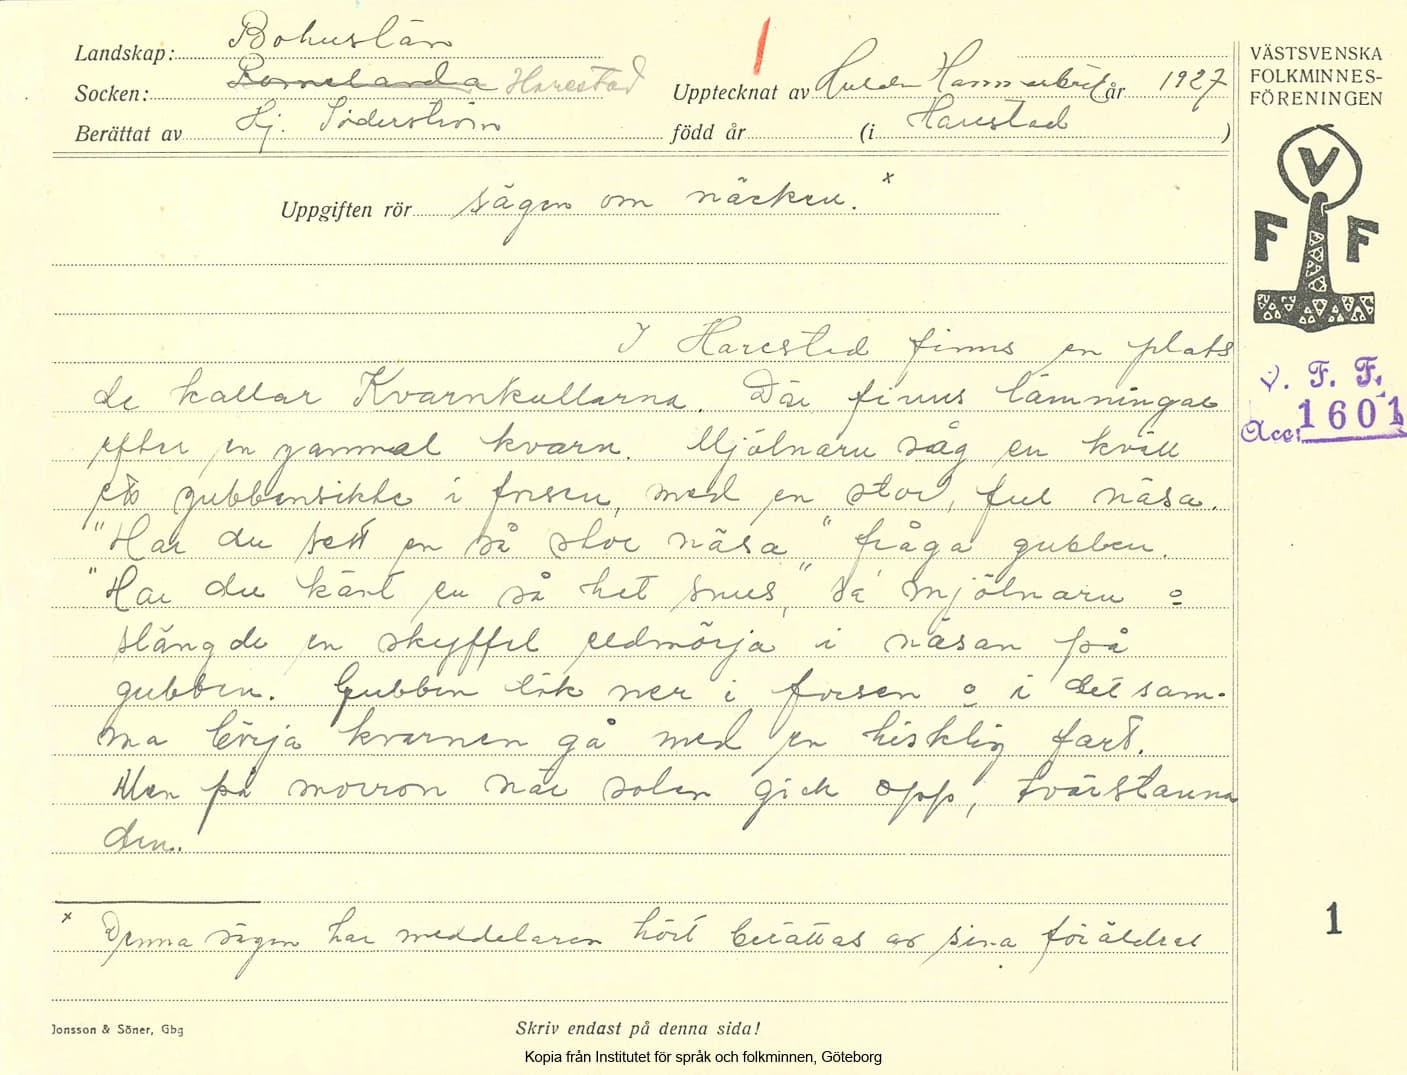 Landskap: Bohuslän
Socken: Romelanda Harestad Upptecknat av Hulda Hammarbäck år 1927
Berättat av Hj. Söderström född år (i Harestad )
VÄSTSVENSKA
FOLKMINNES-
FÖRENINGEN
V
F F
Uppgiften rör sägen om näcken. x
I Harestad finns en plats
de kallar Kvarnkullarna. Där finns lämningar
efter en gammal kvarn. Mjölnarn såg en kväll
ett gubbansikte i forsen, med en stor, ful näsa.
"Har du sett en så stor näsa" fråga gubben.
"Har du känt en så het snus," sa mjölnarn o
slängde en skyffel eldmörja i näsan på
gubben. Gubben dök ner i forsen o i det sam-
ma börja kvarnen gå med en hisklig fart.
Men på morron när solen gick opp, tvärstanna
den.
V. F. F.
Acc: 1601
1
x Denna sägen har meddelaren hört berättas av sina föräldrar
Jonsson & Söner, Gbg
Skriv endast på denna sida!
Kopia från Institutet för språk och folkminnen, Göteborg